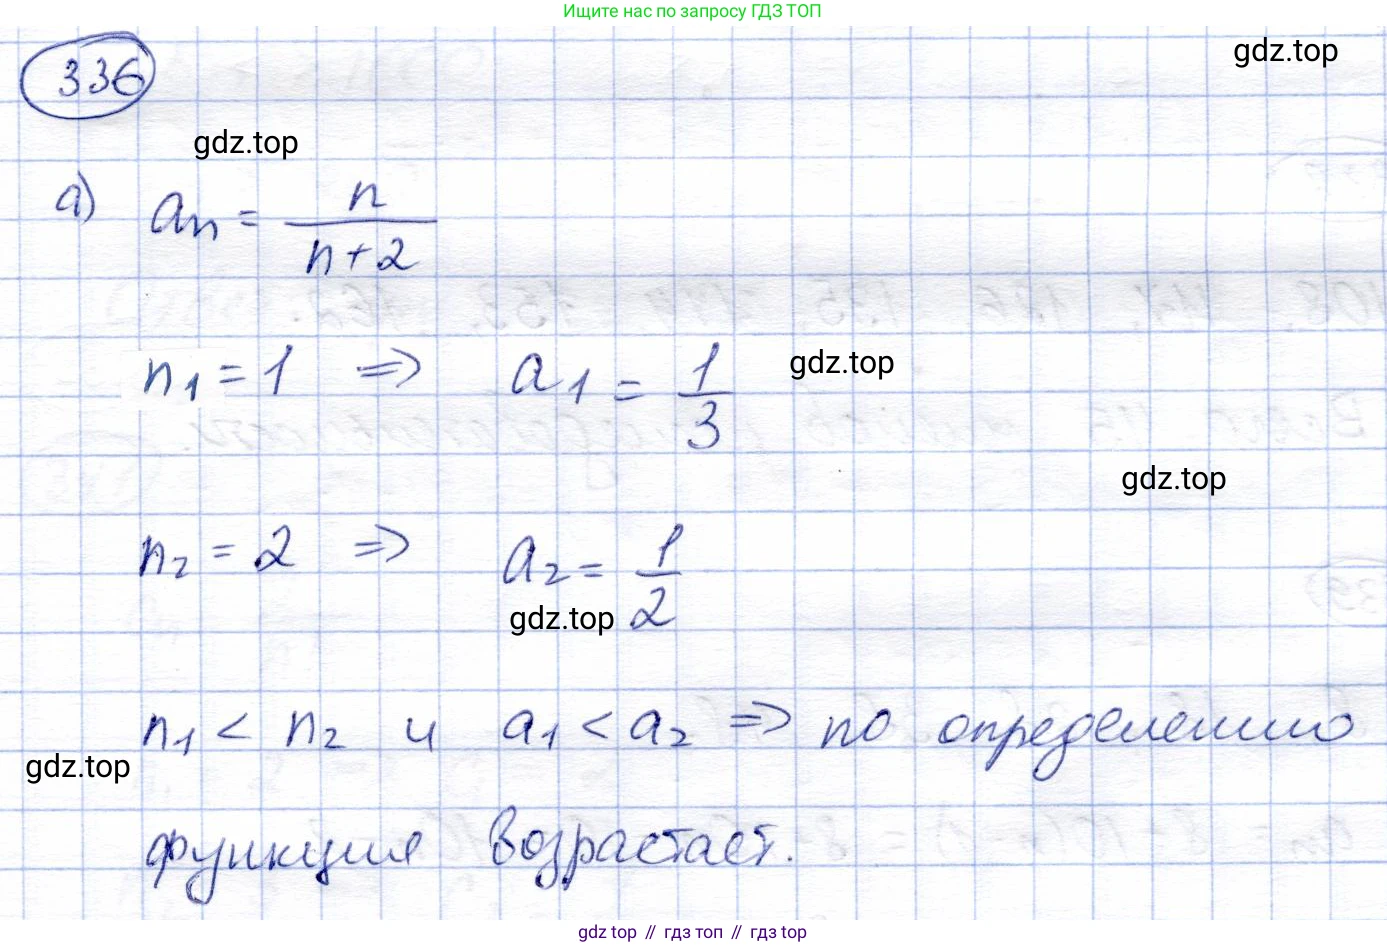 Ищите нас по запросу ГДЗ ТОП
336
gdz.top
gdz.top
а) aₙ = n/(n+2)
n₁ = 1 ⇒ a₁ = 1/3
gdz.top
gdz.top
n₂ = 2 ⇒ a₂ = 1/2
gdz.top
n₁ < n₂ и a₁ < a₂ ⇒ по определению
gdz.top
функция возрастает.
gdz top // гдз топ // гдз top